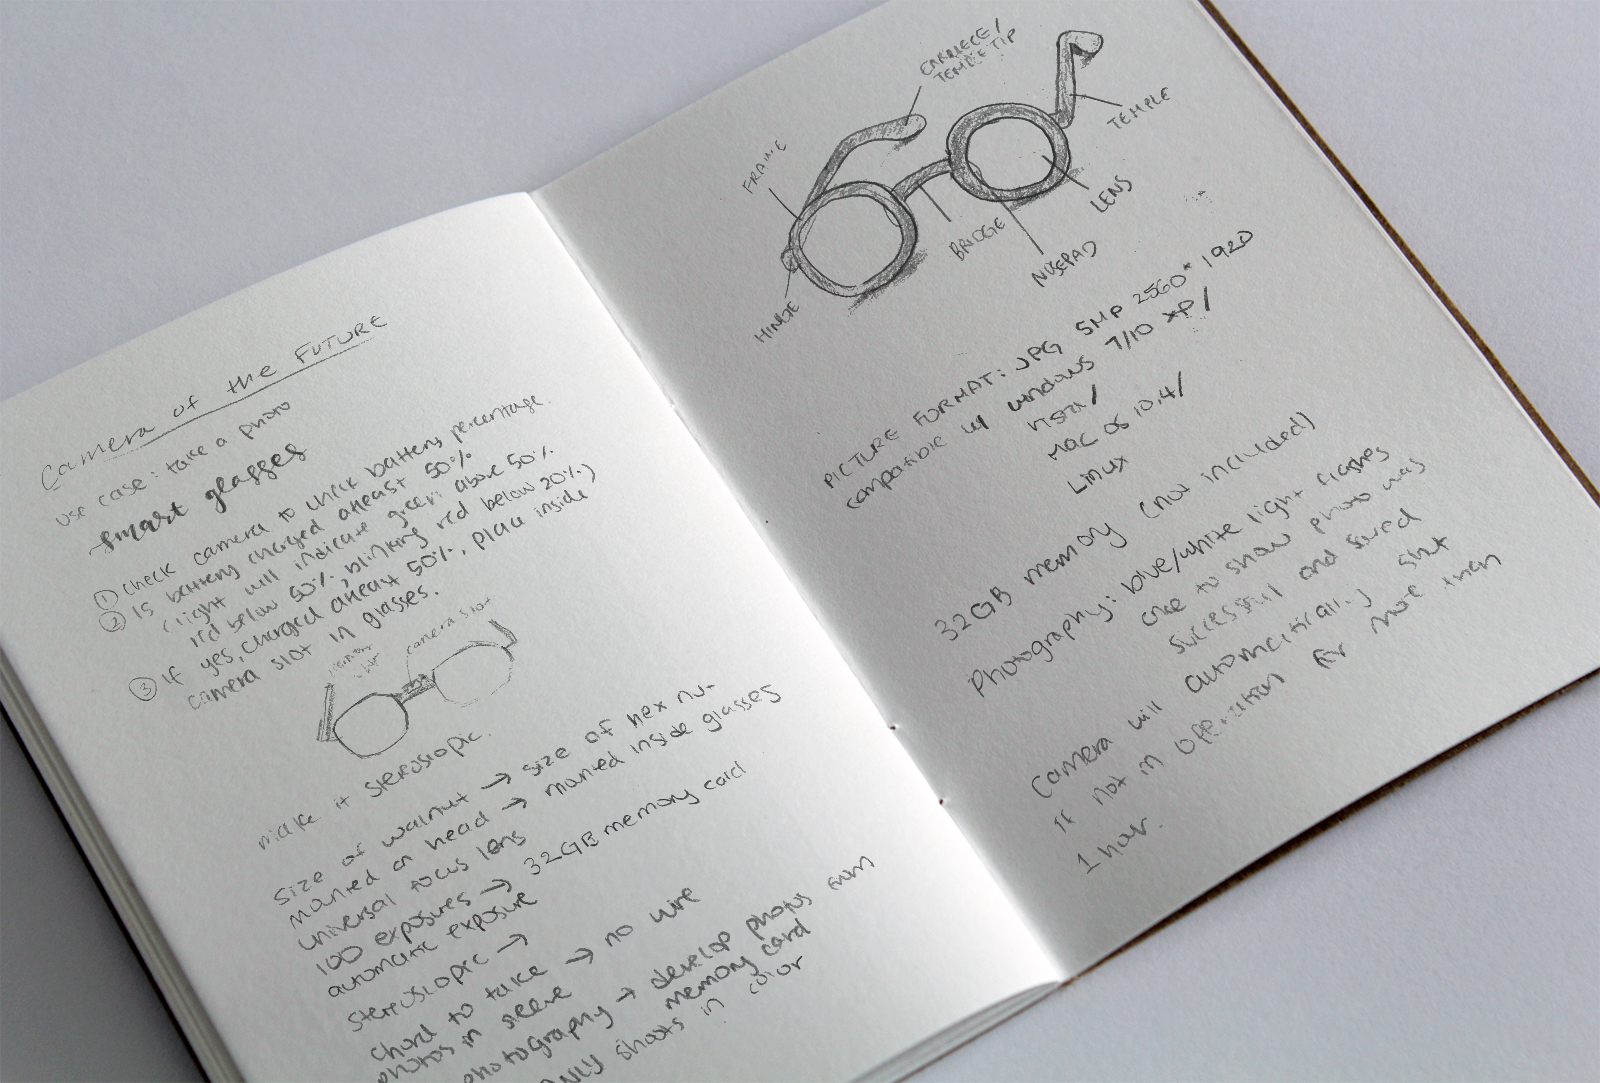 Camera of the FUTURE
use case: take a photo
smart glasses
① check camera to check battery percentage.
② Is battery charged atleast 50%
(light will indicate green above 50%
red below 50%, blinking red below 20%)
③ If yes, charged atleast 50%, place inside
camera slot in glasses.
camera slot
make it stereoscopic.
size of walnut → size of hex nut
mounted on head → mounted inside glasses
universal focus lens
100 exposures → 32GB memory card
automatic exposure
stereoscopic →
chord to take → no wire
photos in sleeve
photography → develop photos from
memory card
only shoots in color
EARPIECE/
TEMPLE TIP
FRAME
TEMPLE
LENS
BRIDGE
NOSEPAD
HINGE
PICTURE FORMAT: JPG 5MP 2560*1920
compatible w/ windows 7/10 XP/
Vista/
MAC OS 10.4/
Linux
32GB memory (not included)
Photography: blue/white light flashes
once to show photo was
successful and saved
Camera will automatically shut
if not in operation for more then
1 hour.